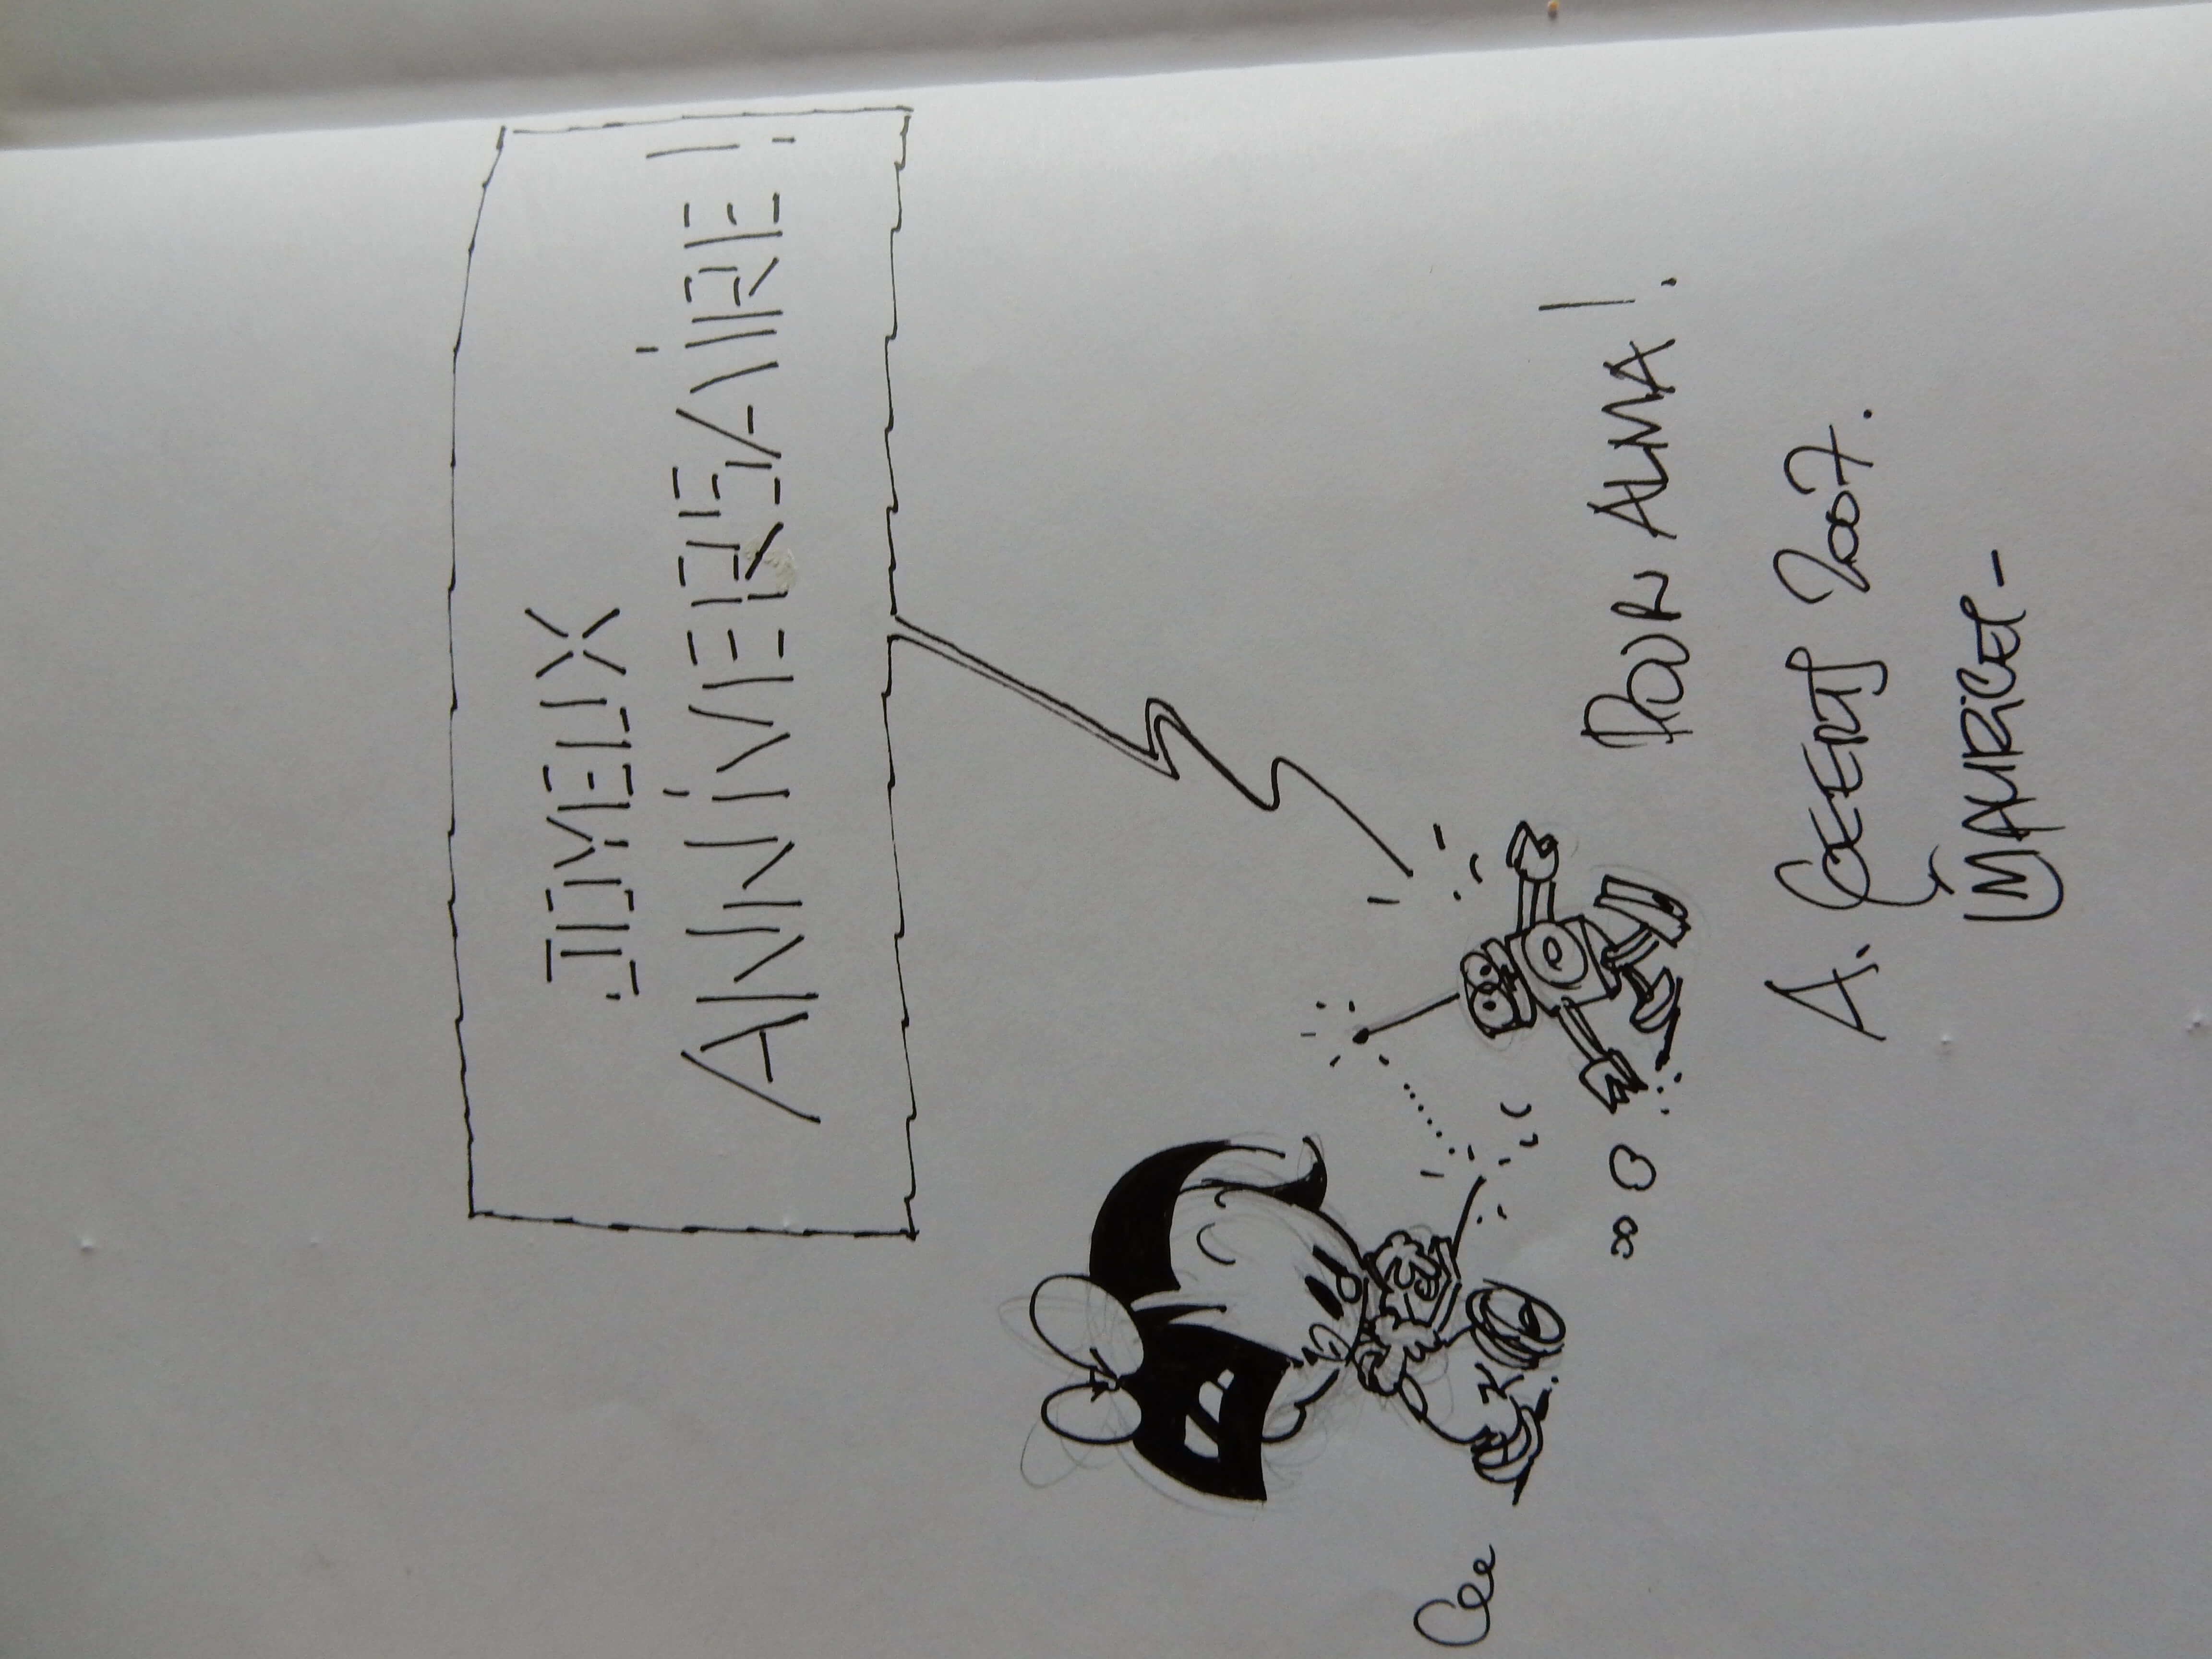 JOYEUX
ANNiVERSAiRE!
POUR ALMA!
A. GEERTS 2007.
MAURiCET-